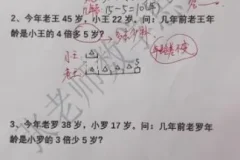 15-5=10(年)
2、今年老王 45 岁，小王 22 岁，问：几年前老王年
龄是小王的 4 倍多 5 岁？
小王
老王
5
年龄差不变
3、今年老罗 38 岁，小罗 17 岁，问：几年前老罗年
龄是小罗的 3 倍少 5 岁？